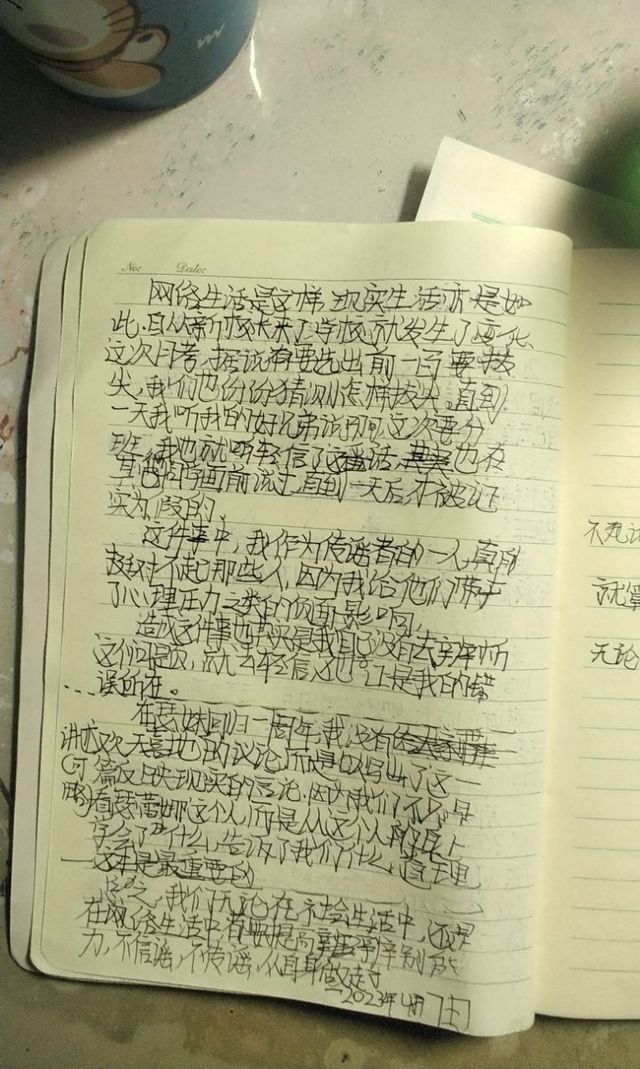 No:    Date:
网络生活是这样,现实生活亦是如
此.自从新校长来了,学校就发生了变化、
这次月考,据说有要选出前一百要拔
尖,我们也份份猜测怎样拔尖,直到
一天我听我的好兄弟说 这次要分
班,我也就听轻信了这 话. 也在
其 同学面前说过,直到一天后才被证
实为假的。
这件事中,我作为传谣者的一人,真的
对不起那些人,因为我给他们带来
了心理压力之类的负面影响,
造成这件事也其实是我自己没有去辨析
这个问题,就去轻信,这也让是我的错
误所在。
在 妹回归一周年,我没有
讲 欢天喜地的议论,而是 写出了这一
(可 篇反映现实的言论.因为我们不 是
略)看瑟蒂娜这个人,而是从这个人的身上
学会了 什么,告诉了我们什么,道理
这本是最重要的
总之,我们无论在社会生活中,还是
在网络生活中都 提高 辨别能
力,不信谣,不传谣,从自身做起
—2023年4月7日
不
就算
无论